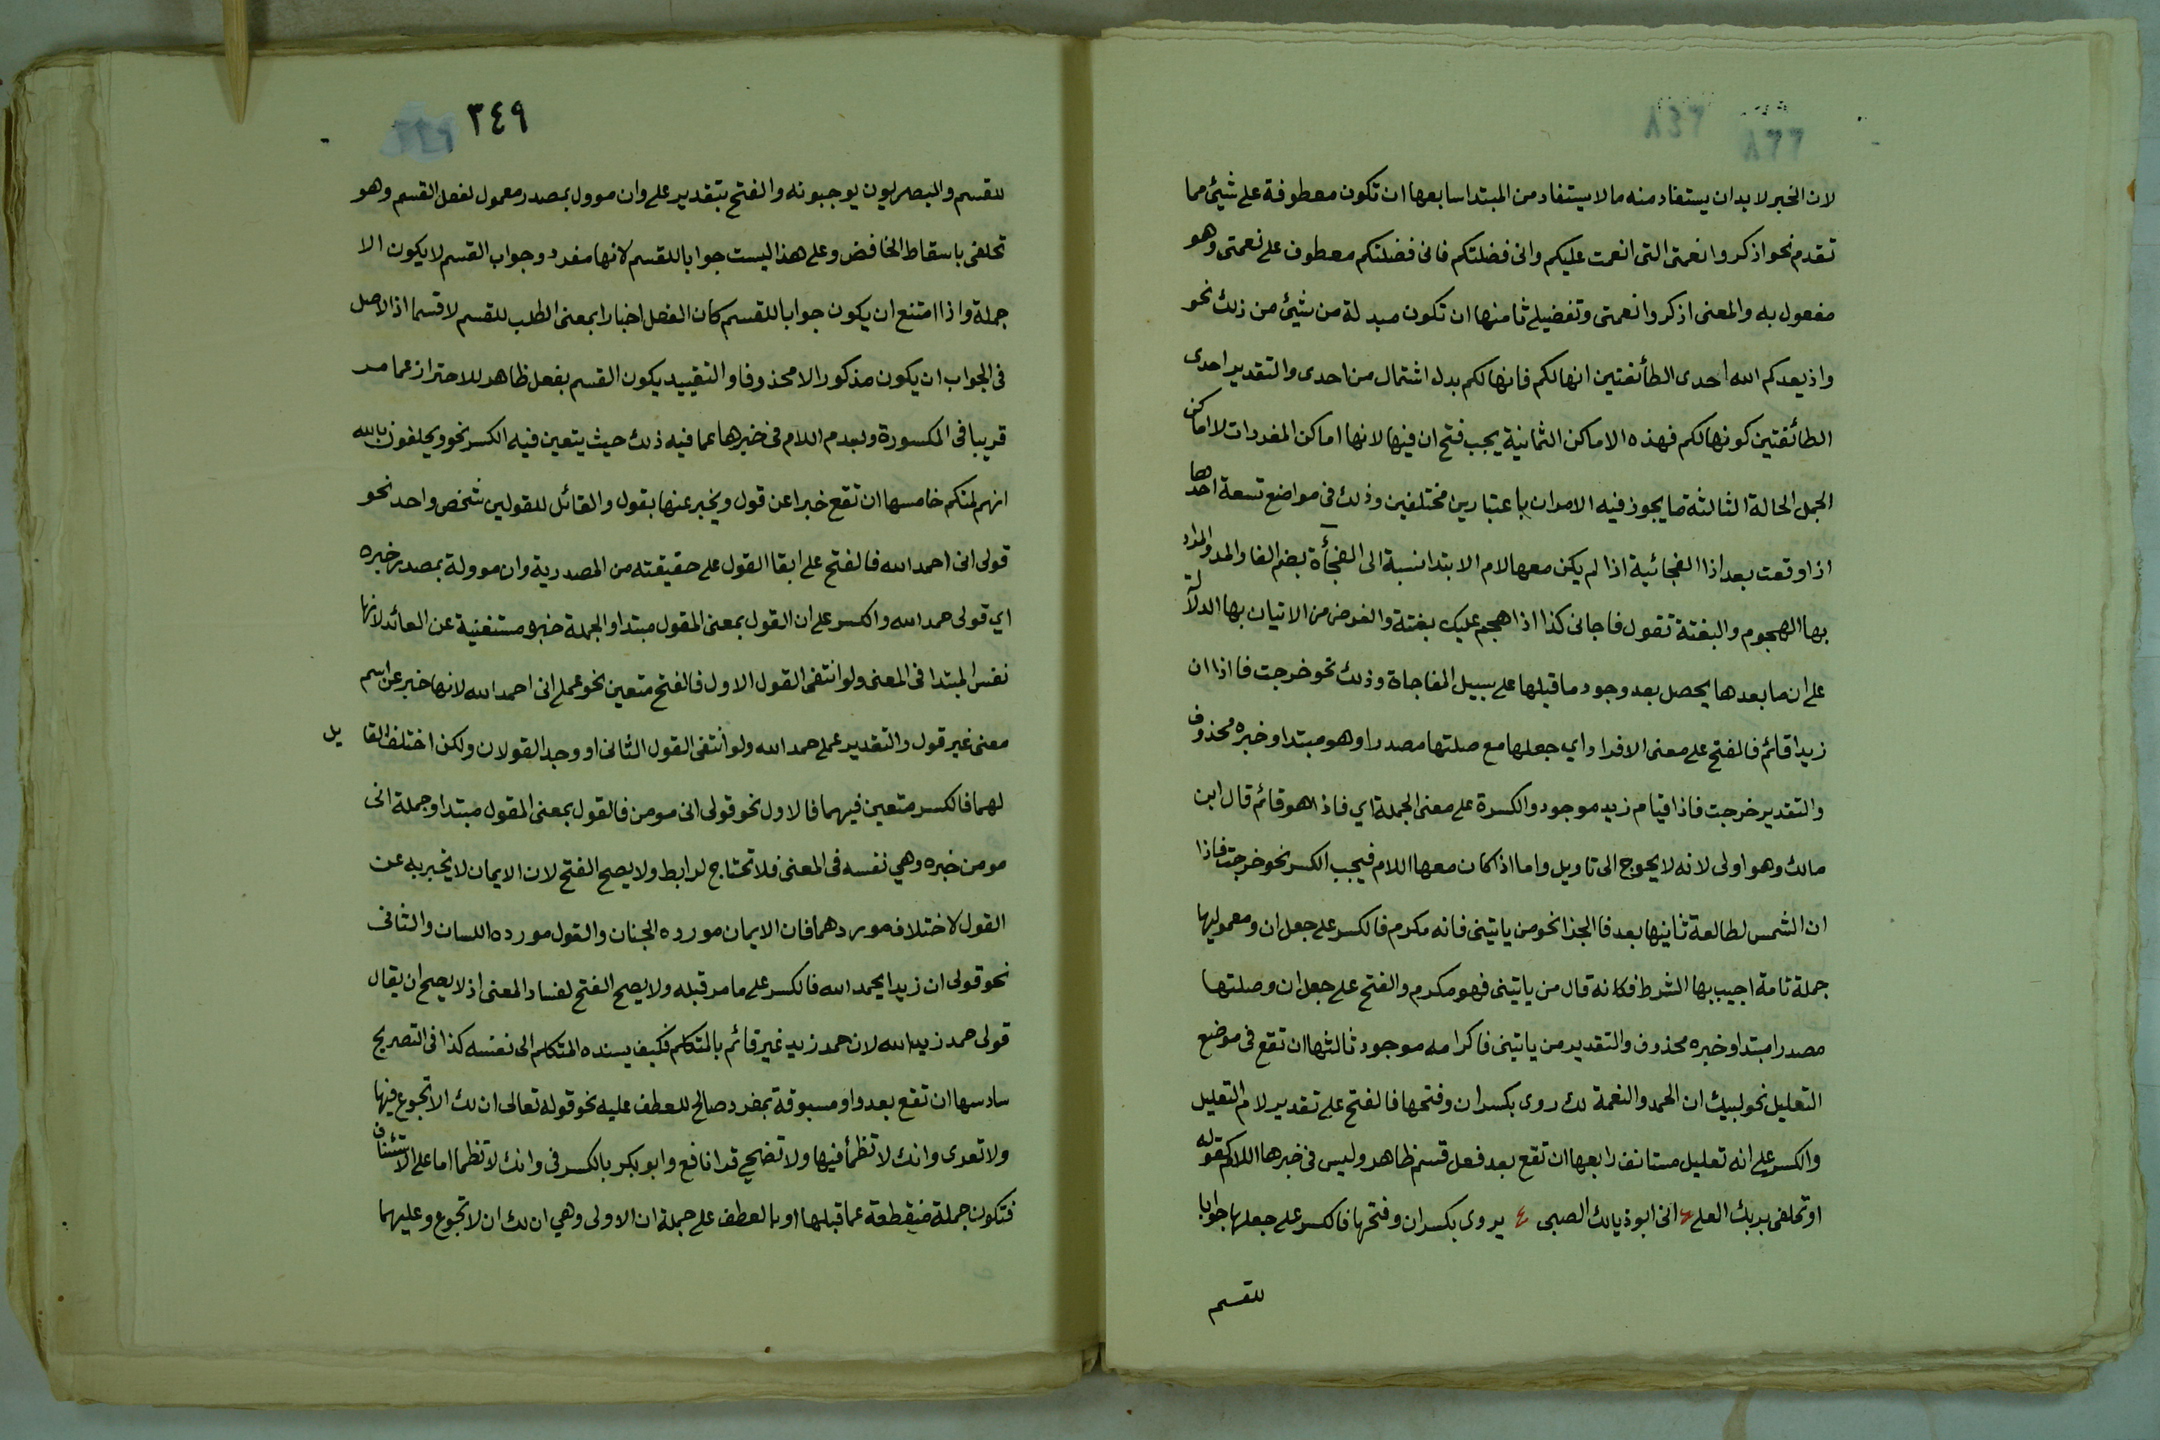 لان الخبر لا بد ان يستفاد منه ما لا يستفاد من المبتدا سابعها ان تكون معطوفة على شيئ مما
تقدم نحو اذكروا نعمتى التى انعمت عليكم وانى فضلتكم فانى فضلتكم معطوف على نعمتى وهو
مفعول به والمعنى اذكروا نعمتى وتفضيلى ثامنها ان تكون مبدلة من شيئ من ذلك نحو
واذ يعدكم الله احدى الطأئفتين انها لكم فانها لكم بدل اشتمال من احدى والتقدير احدى
الطائفتين كونها لكم فهذه الاماكن الثمانية يجب فتح ان فيها لانها اماكن المفردات لا اماكن
الجمل الحالة الثالثة ما يجوز فيه الامران باعتبارين مختلفين وذلك فى مواضع تسعة احدها
اذا وقعت بعد اذا الفجائية اذا لم يكن معها لام الابتدا نسبة الى الفجأة بضم الفا والمد والمراد
بها الهجوم والبغتة تقول فاجانى كذا اذا هجم عليك بغتة والغرض من الاتيان بها الدلالة
على ان ما بعدها يحصل بعد وجود ما قبلها على سبيل المفاجاة وذلك نحو خرجت فاذا ان
زيدا قائم فالفتح على معنى الافراد اي جعلها مع صلتها مصدرا وهو مبتدا وخبره محذوف
والتقدير خرجت فاذا قيام زيد موجود والكسرة على معنى الجملة اي فاذا هو قائم قال ابن
مالك وهو اولى لانه لا يحوج الى تاويل واما اذا كان معها اللام فيجب الكسر نحو خرجت فاذا
ان الشمس لطالعة ثانيها بعد فا الجزا نحو من ياتينى فانه مكرم فالكسر على جعل ان ومعموليها
جملة تامة اجيب بها الشرط فكانه قال من ياتينى فهو مكرم والفتح على جعل ان وصلتها
مصدرا مبتدا وخبره محذوف والتقدير من ياتينى فاكرامه موجود ثالثها ان تقع فى موضع
التعليل نحو لبيك ان الحمد والنعمة لك روى بكسر ان وفتحها فالفتح على تقدير لام التعليل
والكسر على انه تعليل مستانف رابعها ان تقع بعد فعل قسم ظاهر وليس فى خبرها اللام كقوله
او تحلفى بربك العلى انى ابو ذيالك الصبى يروى بكسر ان وفتحها فالكسر على جعلها جوابا
للقسم
٣٤٩
للقسم والبصريون يوجبونه والفتح بتقدير على وان موول بمصدر معمول لفعل القسم وهو
تحلفى باسقاط الخافض وعلى هذا ليست جوابا للقسم لانها مفرد وجواب القسم لا يكون الا
جملة واذا امتنع ان يكون جوابا للقسم كان الفعل اخبارا بمعنى الطلب للقسم لا قسما اذ الاصل
فى الجواب ان يكون مذكورا لا محذوفا والتقييد يكون القسم بفعل ظاهر للاحتراز عما مر
قريبا فى المكسورة وبعدم اللام فى خبرها عما فيه ذلك حيث يتعين فيه الكسر نحو ويحلفون بالله
انهم لمنكم خامسها ان تقع خبرا عن قول ويخبر عنها بقول والقائل للقولين شخص واحد نحو
قولى انى احمد الله فالفتح على ابقا القول على حقيقته من المصدرية وان موولة بمصدر خبره
اي قولى حمد الله والكسر على ان القول بمعنى المقول مبتدا والجملة خبره مستغنية عن العائد لانها
نفس المبتدا فى المعنى ولو انتفى القول الاول فالفتح متعين نحو عملى انى احمد الله لانها خبر عن اسم
معنى غير قول والتقدير عملى حمد الله ولو انتفى القول الثانى او وجد القولان ولكن اختلف القايل
لهما فالكسر متعين فيهما فالاول نحو قولى انى مومن فالقول بمعنى المقول مبتدا وجملة انى
مومن خبره وهي نفسه فى المعنى فلا تحتاج لرابط ولا يصح الفتح لان الايمان لا يخبر به عن
القول لاختلاف موردهما فان الايمان مورده الجنان والقول مورده اللسان والثانى
نحو قولى ان زيدا يحمد الله فالكسر على ما مر قبله ولا يصح الفتح لفساد المعنى اذ لا يصح ان يقال
قولى حمد زيد الله لان حمد زيد غير قائم بالمتكلم فكيف يسنده المتكلم الى نفسه كذا فى التصريح
سادسها ان تقع بعد واو مسبوقة بمفرد صالح للعطف عليه نحو قوله تعالى ان لك الا تجوع فيها
ولا تعرى وانك لا تظمأ فيها ولا تضحى قرا نافع وابو بكر بالكسر فى وانك لا تظما اما على الاستئناف
فتكون جملة منقطعة عما قبلها او بالعطف على جملة ان الاولى وهي ان لك ان لا تجوع وعليهما